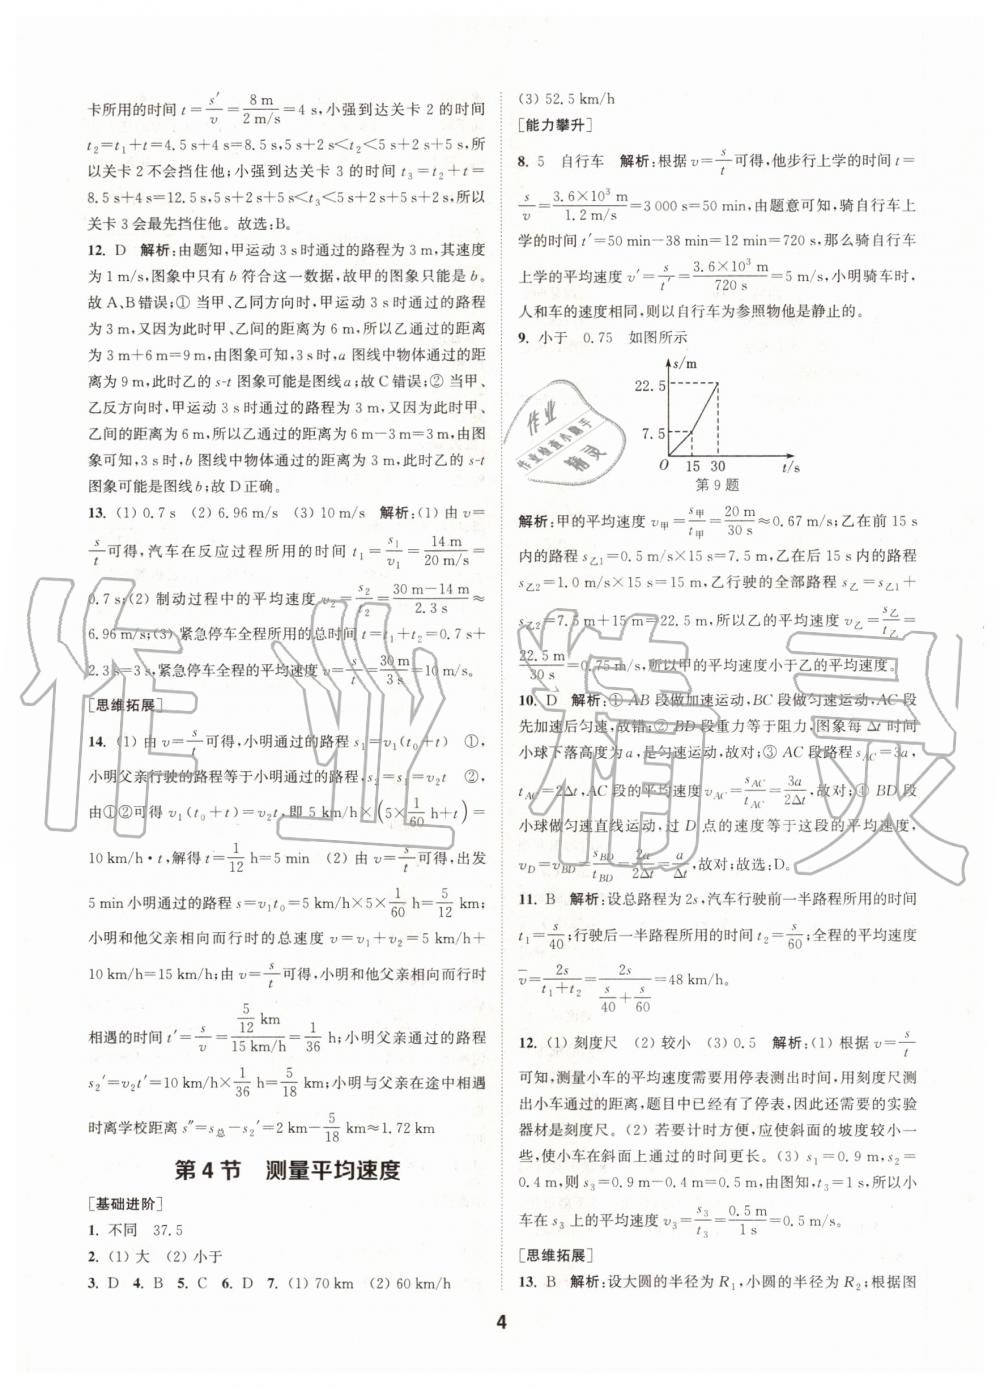 卡所用的时间 t=s′/v=8 m/2 m/s=4 s,小强到达关卡 2 的时间
t₂=t₁+t=4.5 s+4 s=8.5 s,5 s+2 s<t₂<5 s+2 s+5 s,所
以关卡 2 不会挡住他;小强到达关卡 3 的时间 t₃=t₂+t=
8.5 s+4 s=12.5 s,5 s+2 s+5 s<t₃<5 s+2 s+5 s+2 s,所以
关卡 3 会最先挡住他。故选:B。
12. D 解析:由题知,甲运动 3 s 时通过的路程为 3 m,其速度
为 1 m/s,图象中只有 b 符合这一数据,故甲的图象只能是 b。
故 A、B 错误;① 当甲、乙同方向时,甲运动 3 s 通过的路程
为 3 m,又因为此时甲、乙间的距离为 6 m,所以乙通过的路程
为 3 m+6 m=9 m,由图象可知,3 s 时,a 图线中物体通过的距
离为 9 m,此时乙的 s-t 图象可能是图线 a;故 C 错误;② 当甲、
乙反方向时,甲运动 3 s 通过的路程为 3 m,又因为此时甲、
乙间的距离为 6 m,所以乙通过的路程为 6 m-3 m=3 m,由
图象可知,3 s 时,b 图线中物体通过的距离为 3 m,此时乙的 s-t
图象可能是图线 b;故 D 正确。
13. (1) 0.7 s (2) 6.96 m/s (3) 10 m/s 解析:(1) 由 v=
s/t 可得,汽车在反应过程所用的时间 t₁=s₁/v₁=14 m/20 m/s=
0.7 s;(2) 制动过程中的平均速度 v₂=s₂/t₂=30 m-14 m/2.3 s≈
6.96 m/s;(3) 紧急停车全程所用的总时间 t=t₁+t₂=0.7 s+
2.3 s=3 s,紧急停车全程的平均速度 v=s/t=30 m/3 s=10 m/s。
[思维拓展]
14. (1) 由 v=s/t 可得,小明通过的路程 s₁=v₁(t₀+t) ①,
小明父亲行驶的路程等于小明通过的路程,s₂=s₁=v₂t ②,
由①②可得 v₁(t₀+t)=v₂t,即 5 km/h×(5×1/60 h+t)=
10 km/h·t,解得 t=1/12 h=5 min (2) 由 v=s/t 可得,出发
5 min 小明通过的路程 s=v₁t₀=5 km/h×5×1/60 h=5/12 km;
小明和他父亲相向而行时的总速度 v=v₁+v₂=5 km/h+
10 km/h=15 km/h;由 v=s/t 可得,小明和他父亲相向而行时
相遇的时间 t′=s/v=5/12 km/15 km/h=1/36 h;小明父亲通过的路程
s₂′=v₂t′=10 km/h×1/36 h=5/18 km;小明与父亲在途中相遇
时离学校距离 s″=s总-s₂′=2 km-5/18 km≈1.72 km
第 4 节 测量平均速度
[基础进阶]
1. 不同 37.5
2. (1) 大 (2) 小于
3. D 4. B 5. C 6. D 7. (1) 70 km (2) 60 km/h
(3) 52.5 km/h
[能力攀升]
8. 5 自行车 解析:根据 v=s/t 可得,他步行上学的时间 t=
s/v=3.6×10³ m/1.2 m/s=3 000 s=50 min,由题意可知,骑自行车上
学的时间 t′=50 min-38 min=12 min=720 s,那么骑自行车
上学的平均速度 v′=s/t′=3.6×10³ m/720 s=5 m/s,小明骑车时,
人和车的速度相同,则以自行车为参照物他是静止的。
9. 小于 0.75 如图所示
s/m
22.5
7.5
O 15 30 t/s
第 9 题
作业
作业检查小助手
精灵
解析:甲的平均速度 v甲=s甲/t甲=20 m/30 s≈0.67 m/s;乙在前 15 s
内的路程 s乙1=0.5 m/s×15 s=7.5 m,乙在后 15 s 内的路程
s乙2=1.0 m/s×15 s=15 m,乙行驶的全部路程 s乙=s乙1+
s乙2=7.5 m+15 m=22.5 m,所以乙的平均速度 v乙=s乙/t乙=
22.5 m/30 s=0.75 m/s,所以甲的平均速度小于乙的平均速度。
10. D 解析:① AB 段做加速运动,BC 段做匀速运动,AC 段
先加速后匀速,故错;② BD 段重力等于阻力,图象每 Δt 时间
小球下落高度为 a,是匀速运动,故对;③ AC 段路程 sAC=3a,
tAC=2Δt,AC 段的平均速度 vAC=sAC/tAC=3a/2Δt,故对;④ BD 段
小球做匀速直线运动,过 D 点的速度等于这段的平均速度,
vD=vBD=sBD/tBD=2a/2Δt=a/Δt,故对;故选:D。
11. B 解析:设总路程为 2s,汽车行驶前一半路程所用的时间
t₁=s/40;行驶后一半路程所用的时间 t₂=s/60;全程的平均速度
v̄=2s/t₁+t₂=2s/s/40+s/60=48 km/h。
12. (1) 刻度尺 (2) 较小 (3) 0.5 解析:(1) 根据 v=s/t
可知,测量小车的平均速度需要用停表测出时间,用刻度尺测
出小车通过的距离,题目中已经有了停表,因此还需要的实验
器材是刻度尺。(2) 若要计时方便,应使斜面的坡度较小一
些,使小车在斜面上通过的时间更长。(3) s₁=0.9 m,s₂=
0.4 m,则 s₃=0.9 m-0.4 m=0.5 m,由图知,t₃=1 s,所以小
车在 s₃ 上的平均速度 v₃=s₃/t₃=0.5 m/1 s=0.5 m/s。
[思维拓展]
13. B 解析:设大圆的半径为 R₁,小圆的半径为 R₂;根据图
4
作业精灵